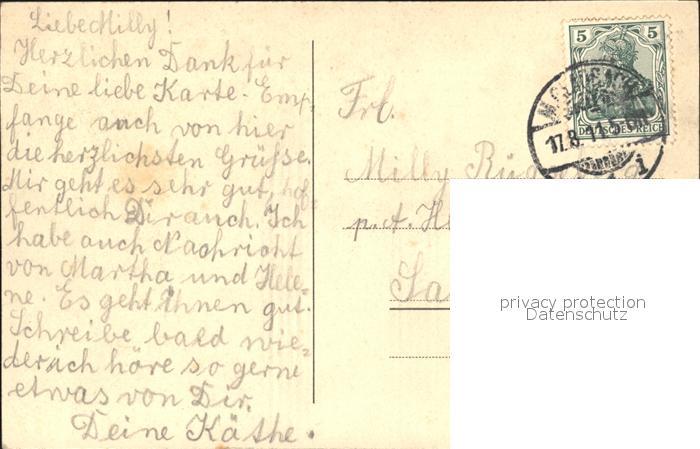 Liebe Milly!
Herzlichen Dank für
Deine liebe Karte. Emp-
fange auch von hier
die herzlichsten Grüsse.
Mir geht es sehr gut, hof-
fentlich Dir auch. Ich
habe auch Nachricht
von Martha und Hele-
ne. Es geht Ihnen gut.
Schreibe bald wie-
der ich höre so gerne
etwas von Dir.
Deine Käthe.
Frl.
Milly
p. A.
5 5
DEUTSCHES REICH
17.8.11.5-6N
privacy protection
Datenschutz